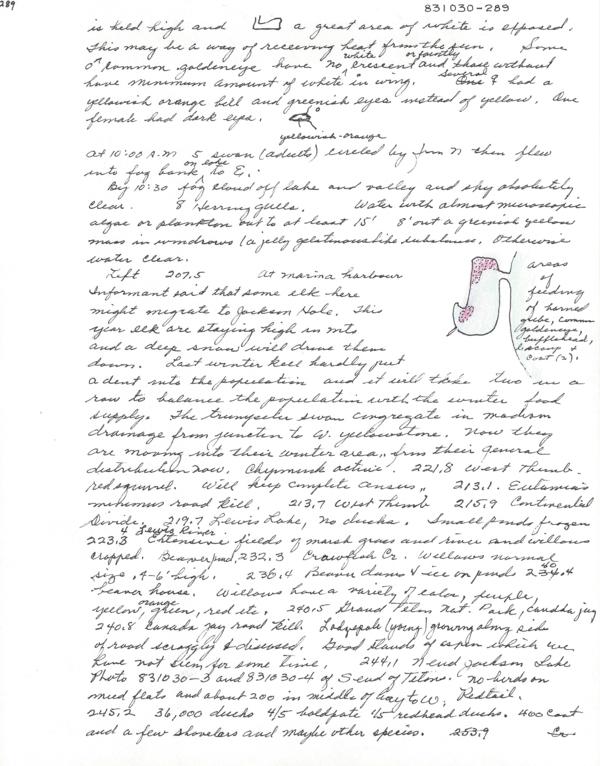 289
831030-289
is held high and a great area of white is exposed.
This may be a way of receiving heat from the sun. Some
common goldeneye have no white crescent and those without or faintly
have minimum amount of white in wing. Several ♀ had a
yellowish orange bill and greenish eyes instead of yellow. One
female had dark eyes.
yellowish-orange
At 10:00 A.M 5 swan (adults) circled by from N then flew
into fog bank on lake to E.
By 10:30 fog cloud off lake and valley and sky absolutely
clear. 8 herring gulls. Water with almost microscopic
algae or plankton out to at least 15' 8' out a greenish yellow
mass in windrows (a jelly gelatinous like substance. Otherwise
water clear.
Left 207.5 At marina harbour
Informant said that some elk here
might migrate to Jackson Hole. This
year elk are staying high in mts
and a deep snow will drive them
down. Last winter kill hardly put
a dent into the population and it will take two in a
row to balance the population with the winter food
supply. The trumpeter swan congregate in madison
drainage from junction to W. Yellowstone. Now they
are moving into their winter area, from their general
distribution now. Chipmunk active. 221.8 West Thumb.
red squirrel. Will keep complete census. 213.1. Eutamias
minimus road kill. 213.7 West Thumb 215.9 Continental
Divide. 219.7 Lewis Lake, no ducks. Small ponds frozen
223.3 & Lewis River. Extensive fields of marsh grass and river and willows
cropped. Beaver pond, 232.3 Crawfish Cr. Willows normal
size, 4-6' high. 236.4 Beaver dams & ice on ponds
beaver house. Willows have a variety of color, purple,
yellow, orange, green, red etc. 240.5 Grand Teton Nat. Park, canada jay
240.8 Canada jay road kill. Lodgepole (young) growing along side
of road scraggly & diseased. Good stands of aspen which we
have not seen for some time. 244.1 N end Jackson Lake
Photo 831030-3 and 831030-4 of S end of Tetons. no birds on
mud flats and about 200 in middle of bay to W. Redtail.
245.2 36,000 ducks 4/5 baldpate 1/5 redhead ducks. 400 coot
and a few shovelers and maybe other species. 253.9
areas
of
feeding
of horned
grebe, common
goldeneye,
bufflehead,
scaup &
coot (2).